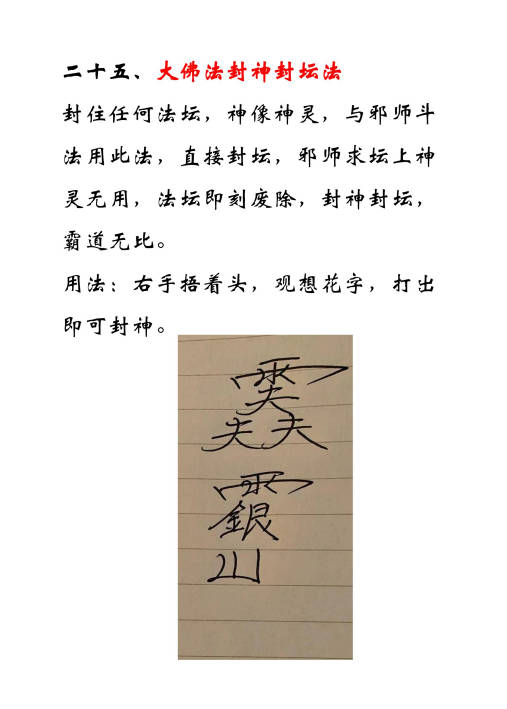 二十五、大佛法封神封坛法
封住任何法坛，神像神灵，与邪师斗
法用此法，直接封坛，邪师求坛上神
灵无用，法坛即刻废除，封神封坛，
霸道无比。
用法：右手捂着头，观想花字，打出
即可封神。
夫
夫夫
銀
山